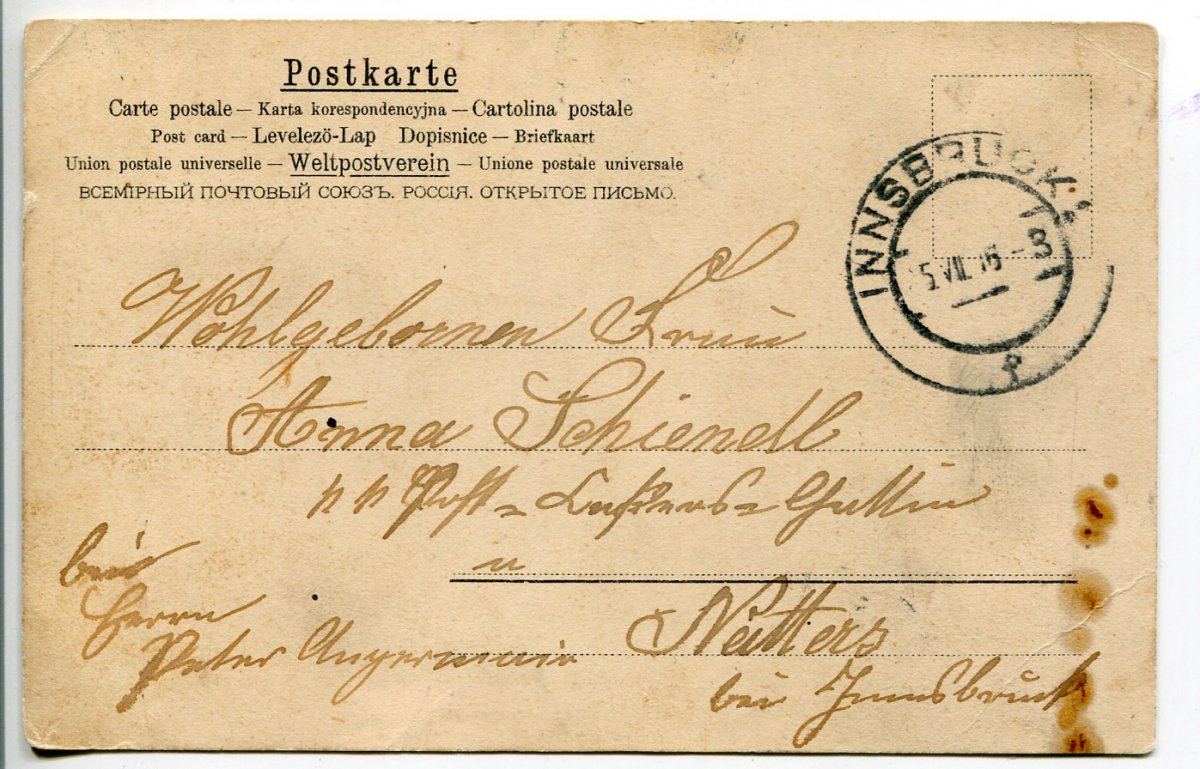 Postkarte
Carte postale — Karta korespondencyjna — Cartolina postale
Post card — Levelezö-Lap Dopisnice — Briefkaart
Union postale universelle — Weltpostverein — Unione postale universale
ВСЕМІРНЫЙ ПОЧТОВЫЙ СОЮЗЪ. РОССІЯ. ОТКРЫТОЕ ПИСЬМО.
INNSBRUCK
5 VII. 8
Wohlgebornen Frau
Anna Schiendl
Post=
bei
Herrn
Peter Angermair
Natters
bei Innsbruck